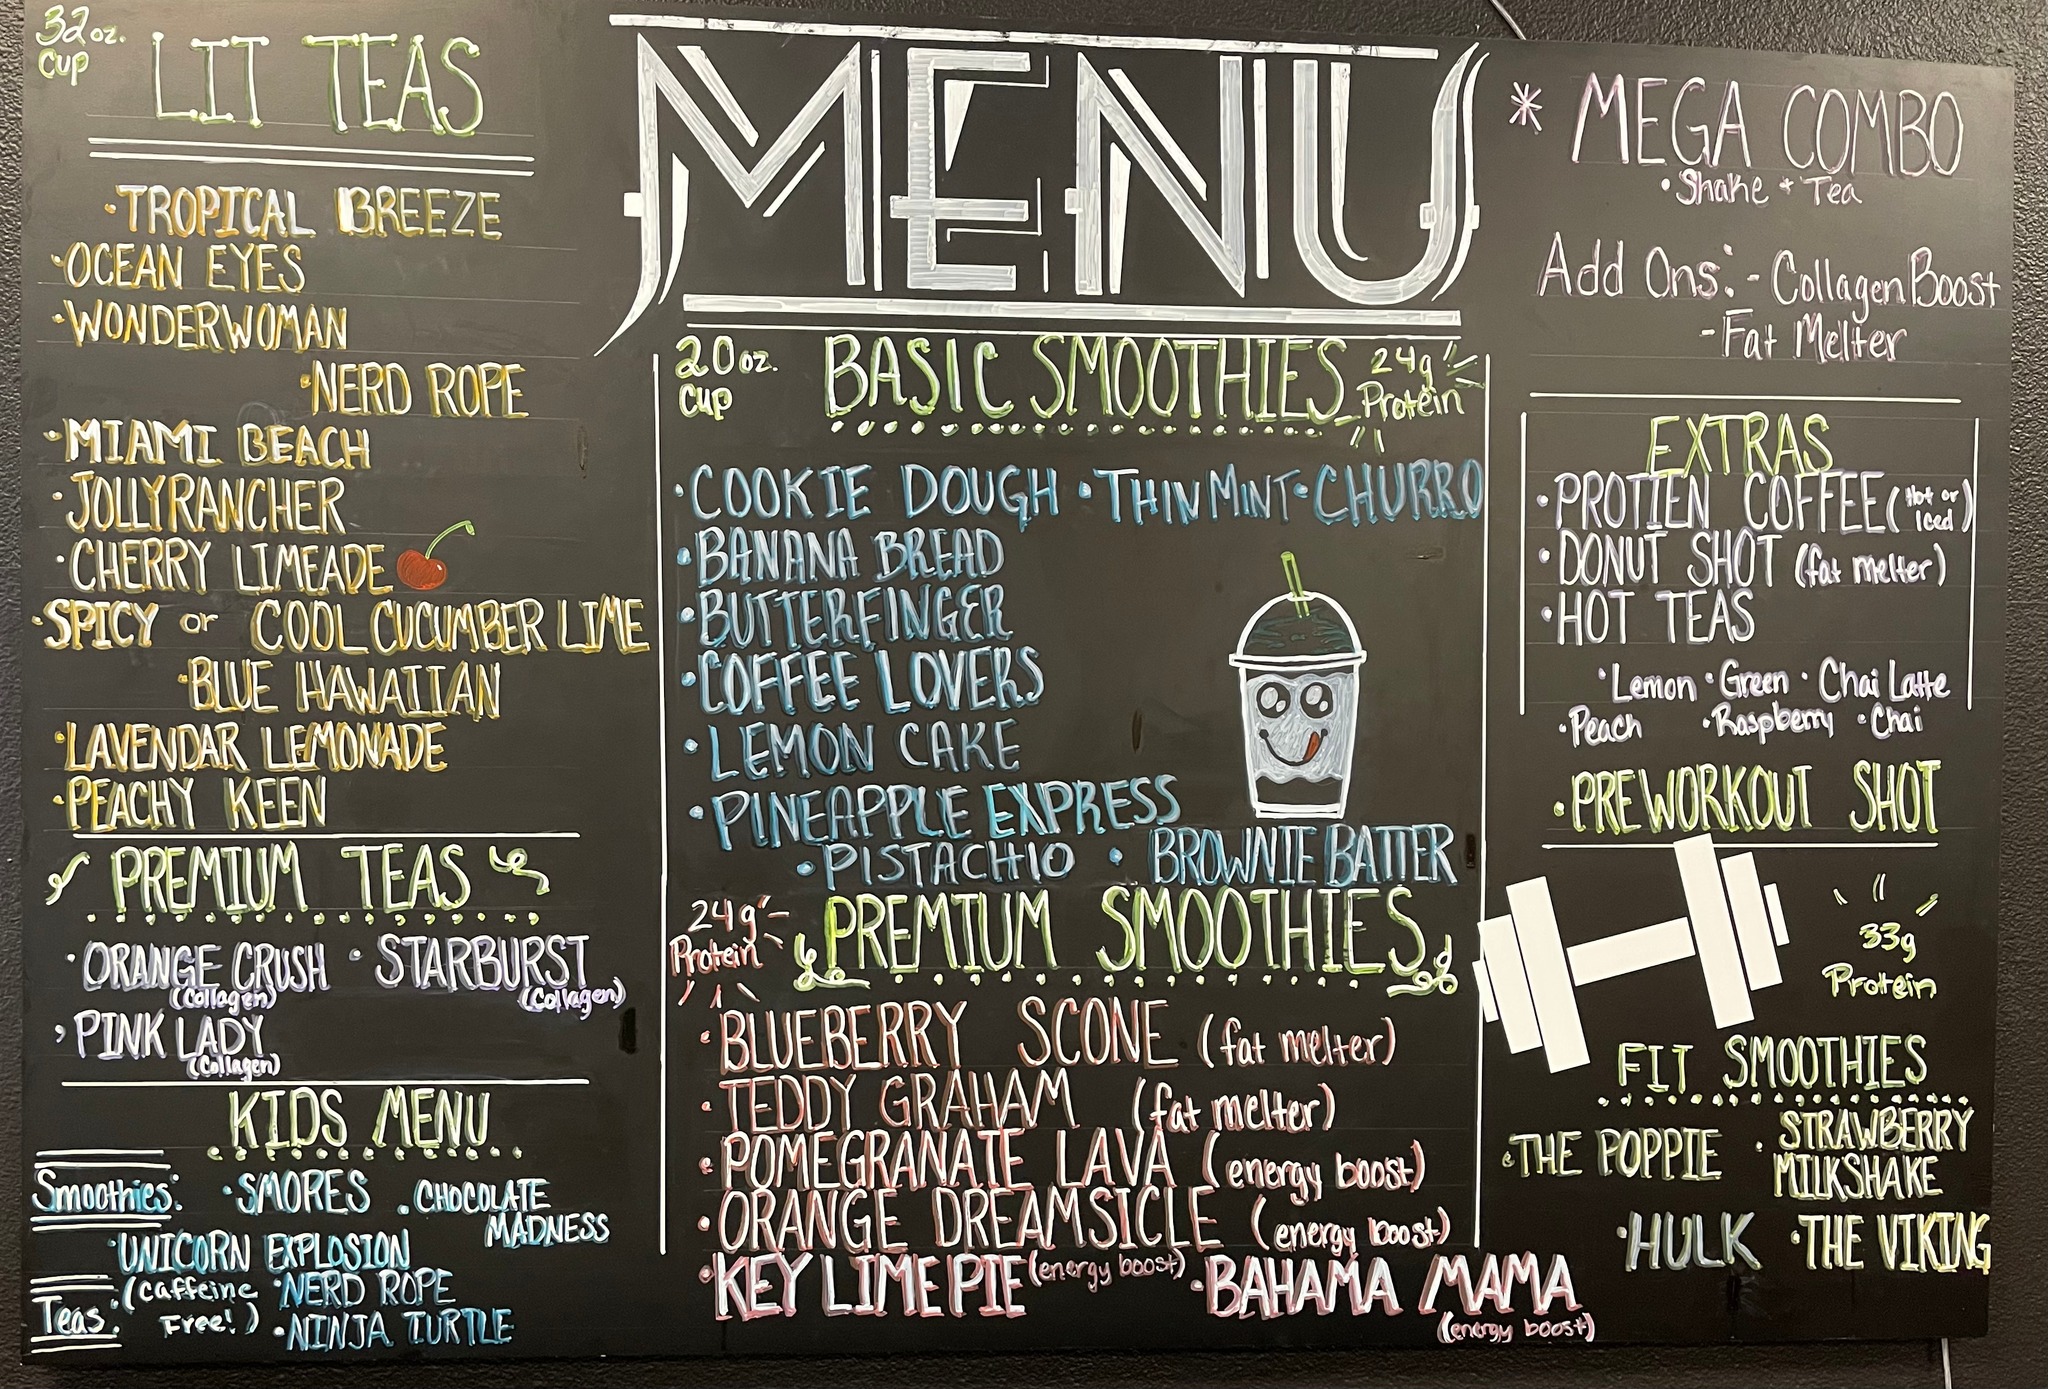 32 oz. cup
LIT TEAS
• TROPICAL BREEZE
• OCEAN EYES
• WONDERWOMAN
• NERD ROPE
• MIAMI BEACH
• JOLLYRANCHER
• CHERRY LIMEADE
• SPICY or COOL CUCUMBER LIME
• BLUE HAWAIIAN
• LAVENDAR LEMONADE
• PEACHY KEEN
PREMIUM TEAS
• ORANGE CRUSH • STARBURST
(Collagen) (Collagen)
• PINK LADY
(Collagen)
KIDS MENU
Smoothies: • SMORES • CHOCOLATE
MADNESS
• UNICORN EXPLOSION
Teas: (caffeine Free!) • NERD ROPE
• NINJA TURTLE
MENU
20 oz. cup
BASIC SMOOTHIES
24g Protein
• COOKIE DOUGH • THIN MINT • CHURRO
• BANANA BREAD
• BUTTERFINGER
• COFFEE LOVERS
• LEMON CAKE
• PINEAPPLE EXPRESS
• PISTACHIO • BROWNIE BATTER
24g Protein
PREMIUM SMOOTHIES
• BLUEBERRY SCONE (fat melter)
• TEDDY GRAHAM (fat melter)
• POMEGRANATE LAVA (energy boost)
• ORANGE DREAMSICLE (energy boost)
• KEY LIME PIE (energy boost) • BAHAMA MAMA
(energy boost)
* MEGA COMBO
• Shake + Tea
Add Ons: - Collagen Boost
- Fat Melter
EXTRAS
• PROTIEN COFFEE (Hot or Iced)
• DONUT SHOT (fat melter)
• HOT TEAS
• Lemon • Green • Chai Latte
• Peach • Raspberry • Chai
• PREWORKOUT SHOT
33g
Protein
FIT SMOOTHIES
• THE POPPIE • STRAWBERRY
MILKSHAKE
• HULK • THE VIKING